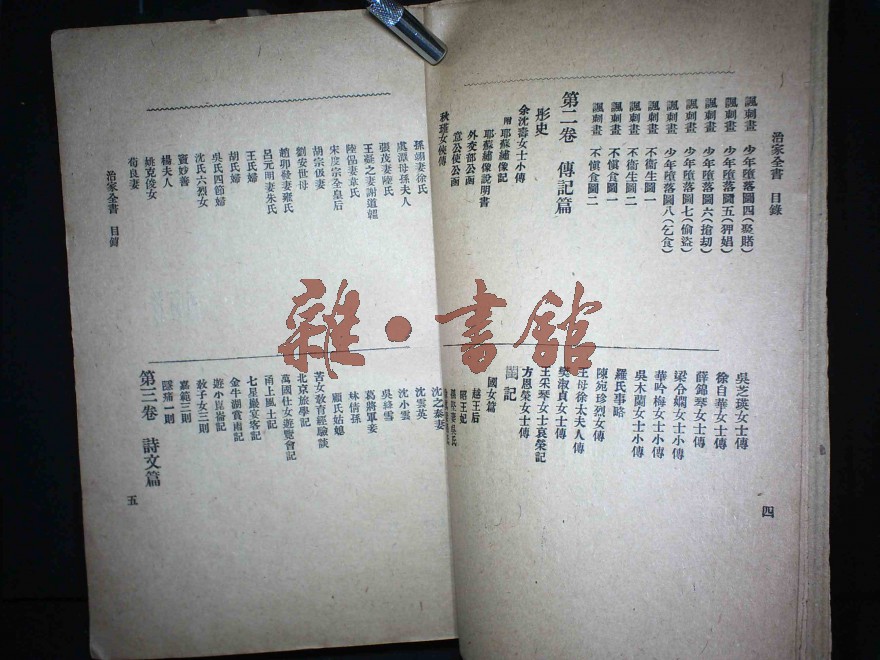 治家全書 目錄
諷刺畫 少年墮落圖四(聚賭)
諷刺畫 少年墮落圖五(狎娼)
諷刺畫 少年墮落圖六(搶劫)
諷刺畫 少年墮落圖七(偷盜)
諷刺畫 少年墮落圖八(乞食)
諷刺畫 不衞生圖一
諷刺畫 不衞生圖二
諷刺畫 不愼食圖一
諷刺畫 不愼食圖二
第二卷 傳記篇
彤史
余沈壽女士小傳
附 耶蘇繡像記
耶蘇繡像說明書
外交部公函
意公使公函
秋瑾女俠傳
吳芝瑛女士傳
徐自華女士傳
薛錦琴女士傳
梁令嫻女士小傳
華吟梅女士小傳
吳木蘭女士小傳
羅氏事略
陳宛珍烈女傳
王母徐太夫人傳
樊淑貞女士傳
王采琴女士哀榮記
方恩榮女士傳
閨記
國女篇
越王后
昭王妃
四
孫翊妻徐氏
虞潭母孫夫人
張茂妻陸氏
王凝之妻謝道韞
陸侶妻韋氏
宋度宗全皇后
胡宗伋妻
劉安世母
趙卯發妻雍氏
呂元明妻朱氏
王氏婦
胡氏婦
吳氏四節婦
沈氏六烈女
竇妙善
楊夫人
姚克俊女
荀良妻
沈之泰妻
沈雲英
沈小雲
吳絳雪
葛將軍妾
林倩孫
顧氏姑媳
苦女教育經驗談
北京旅學記
萬國仕女遊覽會記
甬上風土記
七星巖宴客記
金牛湖賞雨記
遊小崑崙記
敎子女三則
嘉範三則
隧痛一則
第三卷 詩文篇
治家全書 目錄
五
雜·書館